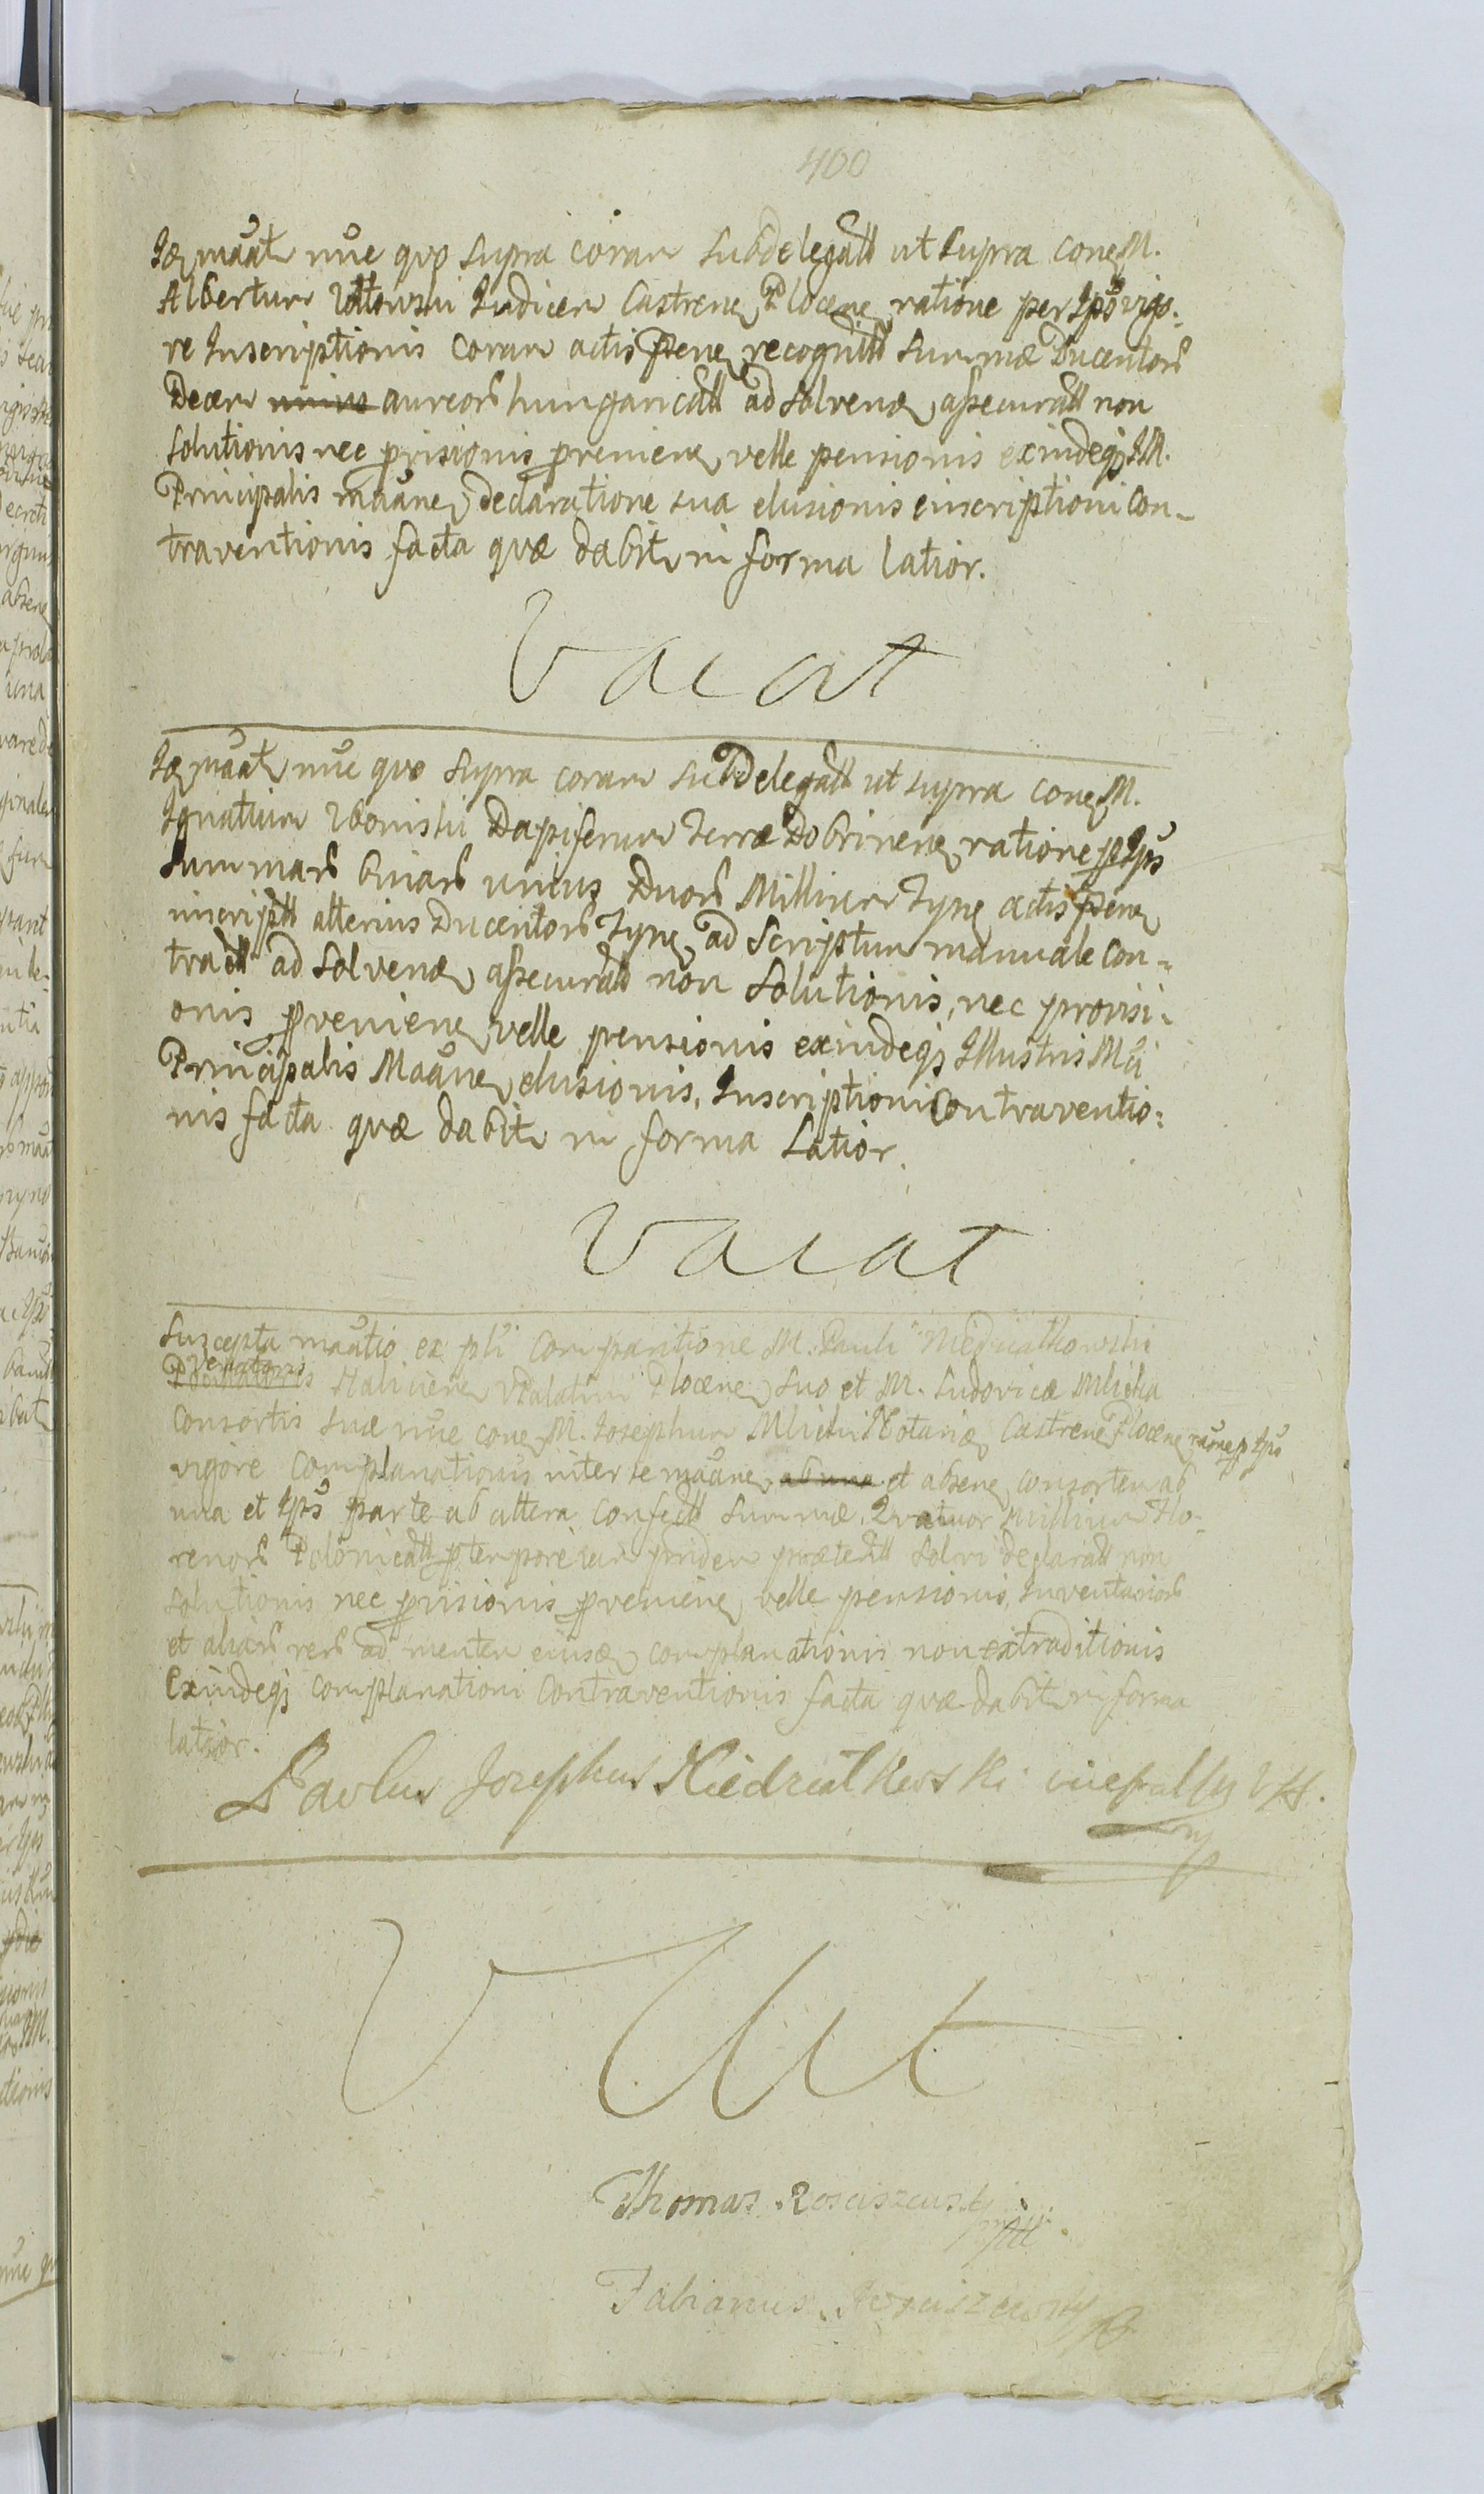 400
Idem māāt nūc quo supra coram subdelegatt ut supra conem M.
Albertum Iudicem Castrenem Plocenem ratione per Ipsū vigo-
re Inscriptionis coram actis pnem recognitt summæ Ducentorū
Decem aureorū hungaricatt ad solvendæ assecuratt non
solutionis nec provisionis provenienem velle pensionis exindeq3 IM.
Principalis māānem declaratione sua elusionis einscriptioni Con-
traventionis facta quæ dabit in forma latior.
Vacat
Idem māāt nūc quo supra coram subdelegatt ut supra conem M.
Ignatium Dapiferum Terræ Dobrinenem ratione p Ipsū
summarū binarū unius Duorū Millium Tynem actis pnem
inscriptt alterius Ducentorū Tynem ad scriptum manuale con-
tractt ad solvendæ assecuratt non solutionis, nec provisi-
onis provenienem velle pensionis exindeq3 Illustris Mci
Principalis Māānem elusionis, Inscriptioni Contraventio-
nis facta quæ dabit in forma Latior.
Vacat
Suscepta māātio ex pti comparitione M. Pauli Niedziałkowski
Venatoris Halicienem VPalatini Plocenem suo et M. Ludovicæ Mlicka
consortis suæ nūc conem M. Iosephum Mlicki Notariū Castrenem Plocenem rāōne p Ipsū
vigore Complanationis inter se māānem ab una et absenem consortem ab
una et Ipsū parte ab altera confectt summæ Quatuor Millium Flo-
renorū Polonicatt p tempore iam pridem præteritt solvi declaratt non
solutionis nec provisionis provenienem velle pensionis, Inventariorū
et aliarū rerū ad mentem eiusdem complanationis non extraditionis
Exindeq3 complanationi Contraventionis facta quæ dabit in forma
latior.
Paulus Josephus Niedziałkowski
Thomas Rosciszewski
Fabianus